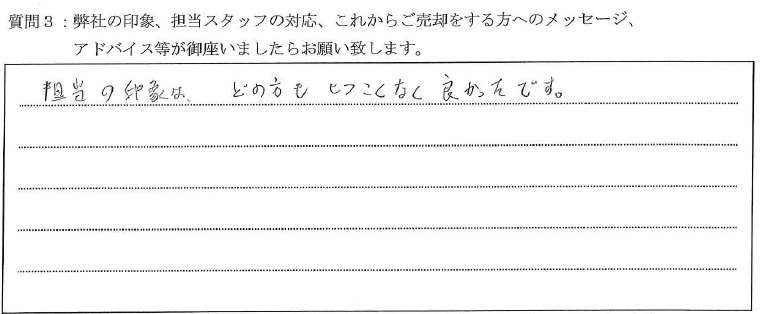 質問3：弊社の印象、担当スタッフの対応、これからご売却をする方へのメッセージ、
アドバイス等が御座いましたらお願い致します。
担当の印象は、どの方もヒつこくなく良かったです。